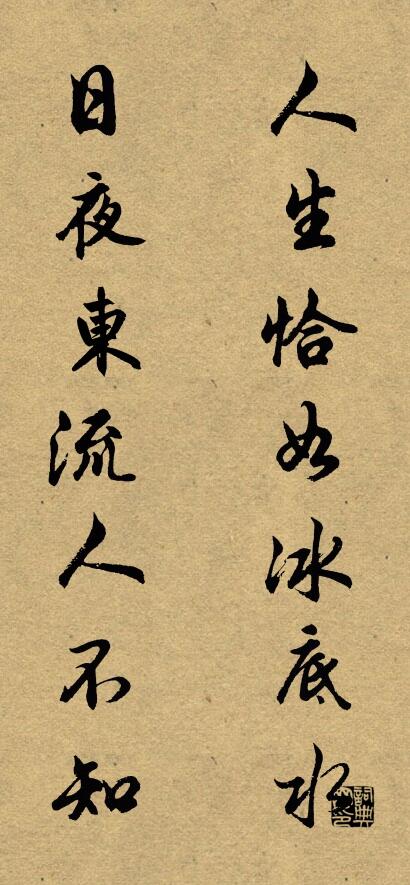 人生恰如冰底水
日夜東流人不知